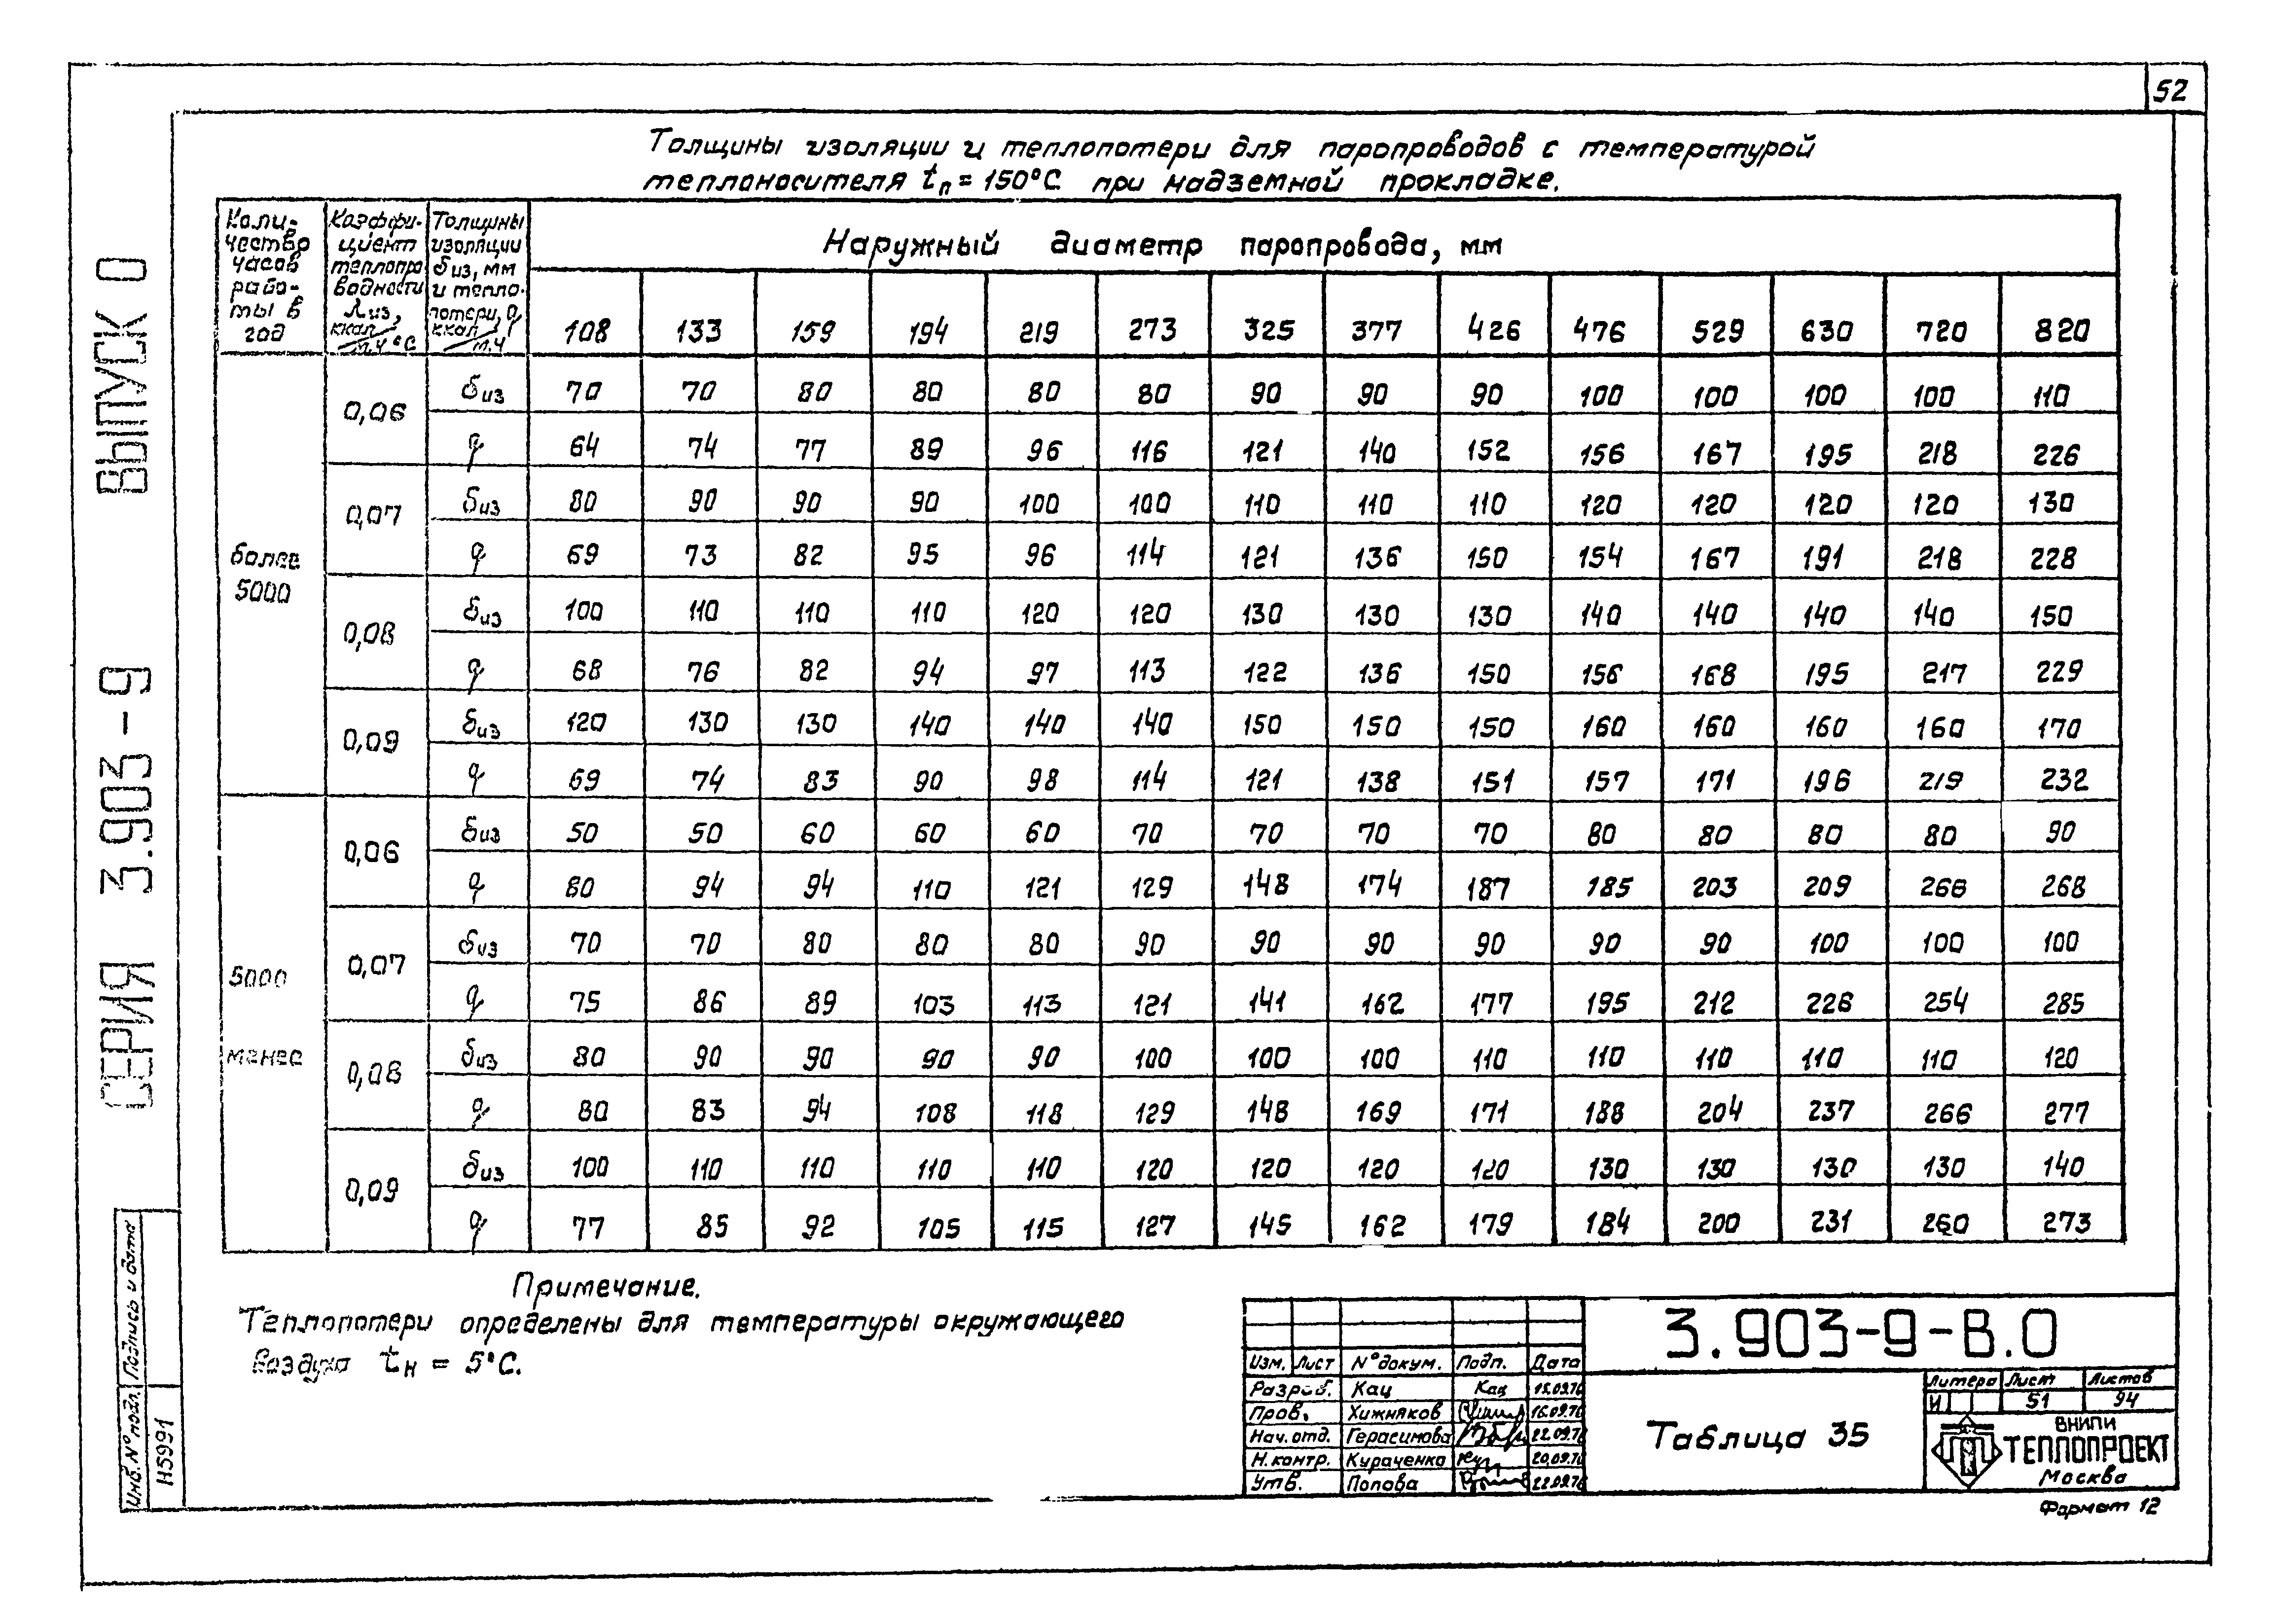 52
Толщины изоляции и теплопотери для паропроводов с температурой
теплоносителя tп = 150°С при надземной прокладке.
Коли-
чество
часов
рабо-
ты в
год
Коэффи-
циент
теплопро
водности
λиз,
ккал/м.ч°С
Толщины
изоляции
δиз, мм
и тепло-
потери, q,
ккал/м.ч
Наружный диаметр паропровода, мм
108 133 159 194 219 273 325 377 426 476 529 630 720 820
более
5000
0,06 δиз 70 70 80 80 80 80 90 90 90 100 100 100 100 110
q 64 74 77 89 96 116 121 140 152 156 167 195 218 226
0,07 δиз 80 90 90 90 100 100 110 110 110 120 120 120 120 130
q 69 73 82 95 96 114 121 136 150 154 167 191 218 228
0,08 δиз 100 110 110 110 120 120 130 130 130 140 140 140 140 150
q 68 76 82 94 97 113 122 136 150 156 168 195 217 229
0,09 δиз 120 130 130 140 140 140 150 150 150 160 160 160 160 170
q 69 74 83 90 98 114 121 138 151 157 171 196 219 232
5000
менее
0,06 δиз 50 50 60 60 60 70 70 70 70 80 80 80 80 90
q 80 94 94 110 121 129 148 174 187 185 203 209 266 268
0,07 δиз 70 70 80 80 80 90 90 90 90 90 90 100 100 100
q 75 86 89 103 113 121 141 162 177 195 212 226 254 285
0,08 δиз 80 90 90 90 90 100 100 100 110 110 110 110 110 120
q 80 83 94 108 118 129 148 169 171 188 204 237 266 277
0,09 δиз 100 110 110 110 110 120 120 120 120 130 130 130 130 140
q 77 85 92 105 115 127 145 162 179 184 200 231 260 273
Примечание.
Теплопотери определены для температуры окружающего
воздуха tн = 5°С.
СЕРИЯ 3.903-9 ВЫПУСК 0
Инв.№ подл. Подпись и дата
Н5991
3.903-9-В.0
Изм. Лист № докум. Подп. Дата
Разраб. Кац Кац 15.09.76
Пров. Хижняков 16.09.76
Нач.отд. Герасимова 22.09.76
Н.контр. Кураченко 20.09.76
Утв. Попова 22.09.76
Таблица 35
Литера Лист Листов
И 51 94
ВНИПИ
ТЕПЛОПРОЕКТ
Москва
Формат 12